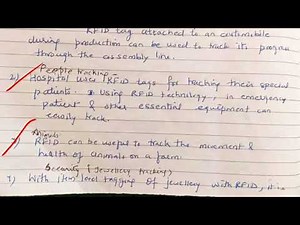 RFID tag attached to an automobile
during production can be used to track its progress
through the assembly line.
People tracking -
2) Hospital uses RFID tags for tracking their special
patients. Using RFID technology, in emergency
patient & other essential equipment can
easily track.
Animals
3) RFID can be useful to track the movement &
health of animals on a farm.
Security (Jewellery tracking)
7) With item level tagging of jewellery with RFID, it is